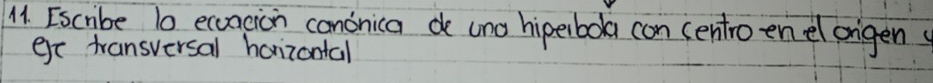 11. Escribe la ecuación canónica de una hiperbola con centro en el origen y
eje transversal horizontal